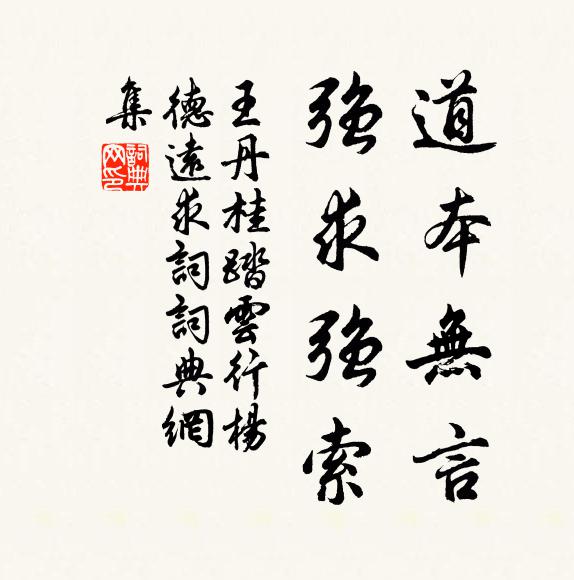 道本無言
強求強索
王丹桂踏雲行楊
德遠求詞詞典網
集
詞典
网印